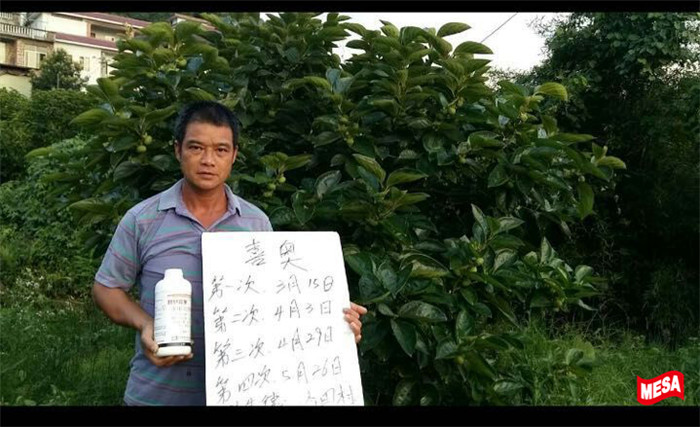 喜奥
第一次.3月15日
第二次.4月3日
第三次.4月29日
第四次.5月26日
MESA